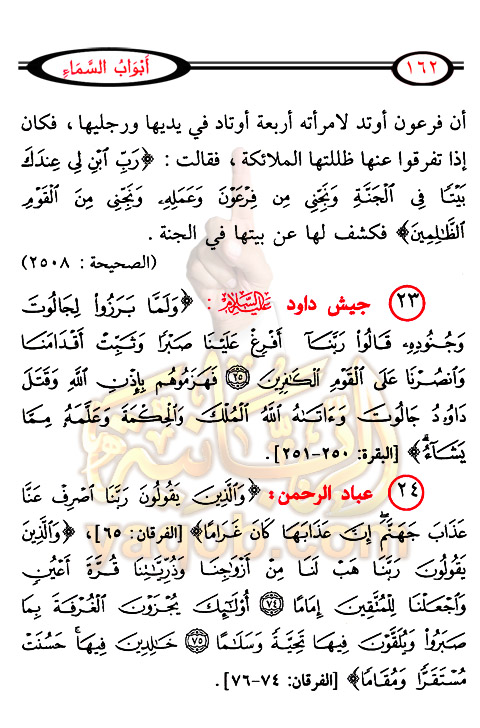 ١٦٢
أَبْوَابُ السَّمَاءِ
أن فرعون أوتد لامرأته أربعة أوتاد في يديها ورجليها ، فكان
إذا تفرقوا عنها ظللتها الملائكة ، فقالت : ﴿رَبِّ ابْنِ لِي عِندَكَ
بَيْتًا فِي الْجَنَّةِ وَنَجِّنِي مِن فِرْعَوْنَ وَعَمَلِهِ وَنَجِّنِي مِنَ الْقَوْمِ
الظَّالِمِينَ﴾ فكشف لها عن بيتها في الجنة .
(الصحيحة : ٢٥٠٨)
٢٣ جيش داود عليه السلام : ﴿وَلَمَّا بَرَزُوا لِجَالُوتَ
وَجُنُودِهِ قَالُوا رَبَّنَا أَفْرِغْ عَلَيْنَا صَبْرًا وَثَبِّتْ أَقْدَامَنَا
وَانصُرْنَا عَلَى الْقَوْمِ الْكَافِرِينَ ٢٥٠ فَهَزَمُوهُم بِإِذْنِ اللَّهِ وَقَتَلَ
دَاوُدُ جَالُوتَ وَءَاتَاهُ اللَّهُ الْمُلْكَ وَالْحِكْمَةَ وَعَلَّمَهُ مِمَّا
يَشَاءُ﴾ [البقرة: ٢٥٠-٢٥١].
٢٤ عباد الرحمن: ﴿وَالَّذِينَ يَقُولُونَ رَبَّنَا اصْرِفْ عَنَّا
عَذَابَ جَهَنَّمَ إِنَّ عَذَابَهَا كَانَ غَرَامًا﴾ [الفرقان: ٦٥]، ﴿وَالَّذِينَ
يَقُولُونَ رَبَّنَا هَبْ لَنَا مِنْ أَزْوَاجِنَا وَذُرِّيَّاتِنَا قُرَّةَ أَعْيُنٍ
وَاجْعَلْنَا لِلْمُتَّقِينَ إِمَامًا ٧٤ أُوْلَٰئِكَ يُجْزَوْنَ الْغُرْفَةَ بِمَا
صَبَرُوا وَيُلَقَّوْنَ فِيهَا تَحِيَّةً وَسَلَامًا ٧٥ خَالِدِينَ فِيهَا حَسُنَتْ
مُسْتَقَرًّا وَمُقَامًا﴾ [الفرقان: ٧٤-٧٦].
yaqob.com